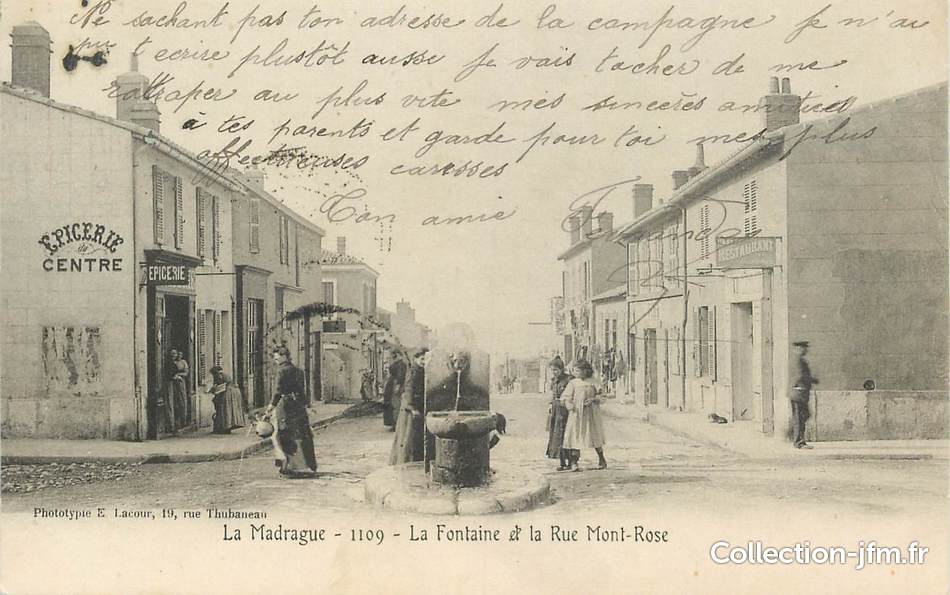 Ne sachant pas ton adresse de la campagne je n'ai
pu t'ecrire plustôt ausse je vais tacher de me
rattraper au plus vite mes sincères amitiés
à tes parents et garde pour toi mes plus
affectueuses caresses
Ton amie
EPICERIE
du
CENTRE
EPICERIE
RESTAURANT
Phototypie E. Lacour, 19, rue Thubaneau
La Madrague - 1109 - La Fontaine & la Rue Mont-Rose
Collection-jfm.fr